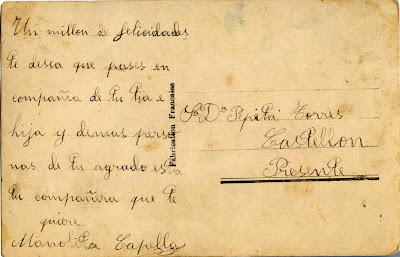 Un millon de felicidades
te desea que pases en
compañia de tu tia e
hija y demas perso
nas de tu agrado esta
tu compañera que te
quiere
Manolita Capella
Fabrication Française
Sª Dª Pepita Torres
Castellon
Presente